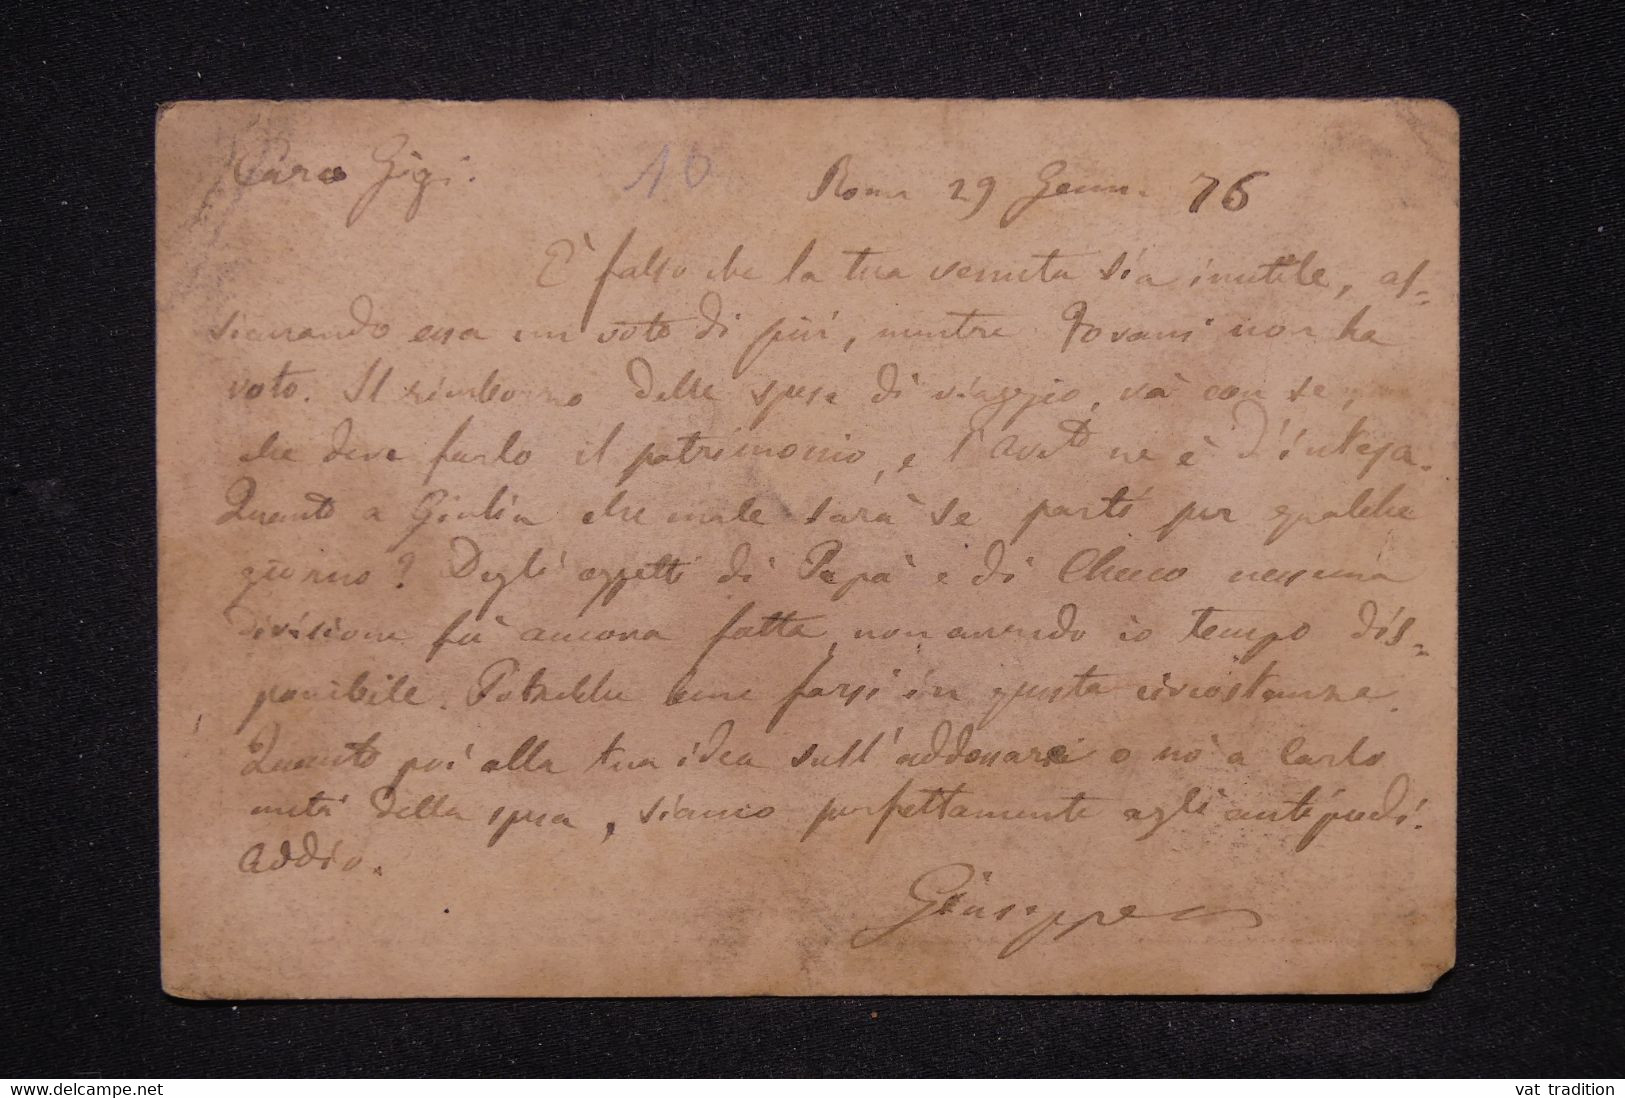 Caro Gigi.
10
Roma 29 Genn. 76
E' falso che la tua venuta sia inutile, as-
sicurando essa un voto di più, mentre Jovani non ha
voto. Il rimborso delle spese di viaggio, và con se,
che deve farlo il patrimonio, e l'Avvto ne è d'intesa.
Quanto a Giulia che male sarà se parte per qualche
giorno? Degli oggetti di Papà e di Checco nessuna
divisione fù ancora fatta, non avendo io tempo dis-
ponibile. Potrebbe farsi in questa circostanza.
Quanto poi alla tua idea sull'addossarsi o nò a Carlo
metà della spesa, siamo perfettamente agli antipodi.
Addio.
Giuseppe
delcampe.net
vat tradition